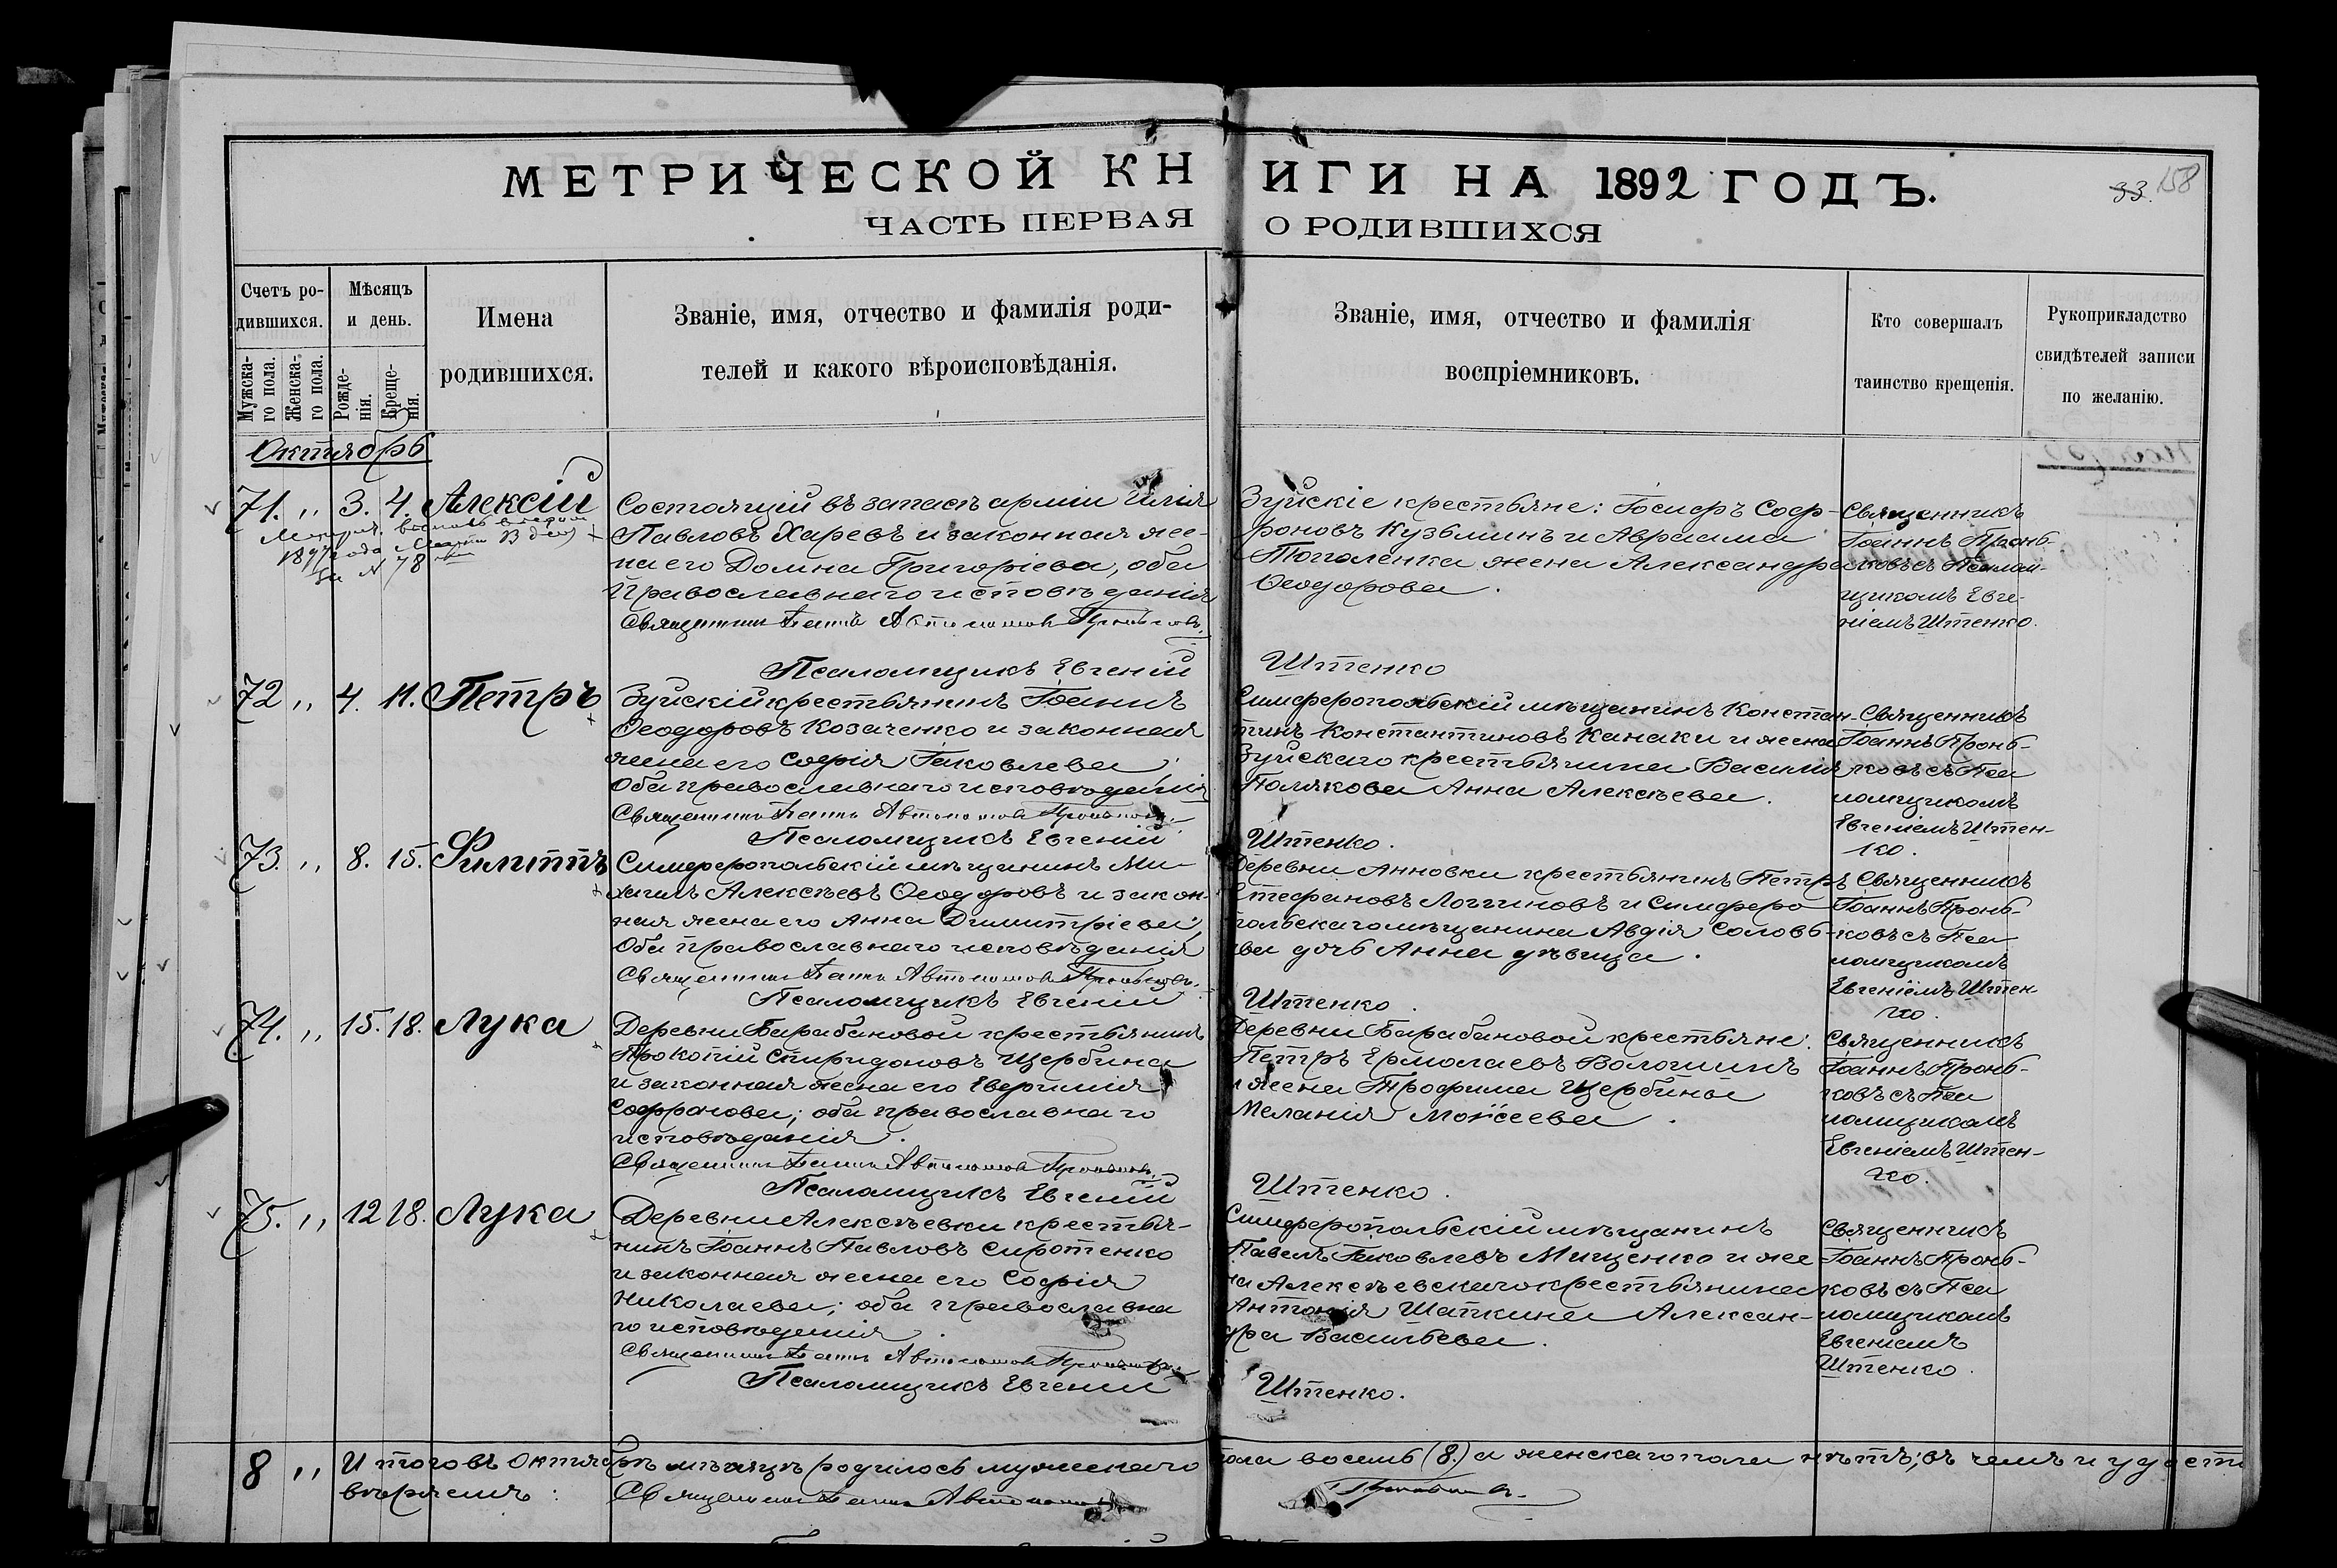 МЕТРИЧЕСКОЙ КНИГИ НА 1892 ГОДЪ.
33. 158
ЧАСТЬ ПЕРВАЯ О РОДИВШИХСЯ
Счетъ родившихся.
Мужскаго пола.
Женскаго пола.
Мѣсяцъ и день.
Рожденія.
Крещенія.
Имена родившихся.
Званіе, имя, отчество и фамилія родителей и какого вѣроисповѣданія.
Званіе, имя, отчество и фамилія воспріемниковъ.
Кто совершалъ таинство крещенія.
Рукоприкладство свидѣтелей записи по желанію.
Октябрь
71. " 3. 4. Алексій
1897 года Марта 13 дня
за № 78
Состоящій въ запасѣ арміи Илія
Павловъ Харевъ и законная же-
на его Домна Григоріева, оба
Православнаго исповѣданія
Священникъ Іоаннъ Автономовъ Проньковъ.
Псаломщикъ Евгеній Штенко
Зуйскіе крестьяне: Іосифъ Соф-
роновъ Кузьминъ и Авраама
Тюпаленка жена Александра
Ѳеодорова.
Священникъ
Іоаннъ Пронь-
ковъ съ Псалом-
щикомъ Евге-
ніемъ Штенко.
72 " 4. 11. Петръ
Зуйскій крестьянинъ Іоаннъ
Ѳеодоровъ Козаченко и законная
жена его Софія Іаковлева;
Оба православнаго исповѣданія
Священникъ Іоаннъ Автономовъ Проньковъ.
Псаломщикъ Евгеній Штенко.
Симферопольскій мѣщанинъ Констан-
тинъ Константиновъ Канаки и жена
Зуйскаго крестьянина Василія
Полякова Анна Алексѣева.
Священникъ
Іоаннъ Пронь-
ковъ съ Пса
ломщикомъ
Евгеніемъ Штен-
ко.
73. " 8. 15. Филиппъ
Симферопольскій мѣщанинъ Ми-
хаилъ Алексѣевъ Ѳеодоровъ и закон-
ная жена его Анна Димитріева;
Оба православнаго исповѣданія
Священникъ Іоаннъ Автономовъ Проньковъ.
Псаломщикъ Евгеній Штенко.
Деревни Анновки крестьянинъ Петръ
Стефановъ Логгиновъ и Симферо
польскаго мѣщанина Авдія Соловь-
ева дочь Анна дѣвица.
Священникъ
Іоаннъ Пронь-
ковъ съ Пса
ломщикомъ
Евгеніемъ Штен-
ко.
74. " 15. 18. Лука
Деревни Барабановой крестьянинъ
Прокопій Спиридоновъ Щербина
и законная жена его Евфимія
Софронова; оба православнаго
исповѣданія.
Священникъ Іоаннъ Автономовъ Проньковъ.
Псаломщикъ Евгеній Штенко.
Деревни Барабановой крестьяне:
Петръ Ермолаевъ Волошинъ
и жена Трофима Щербины
Меланія Моисеева.
Священникъ
Іоаннъ Пронь-
ковъ съ Пса
ломщикомъ
Евгеніемъ Штен-
ко.
75. " 12 18. Лука
Деревни Алексѣевки крестья-
нинъ Іоаннъ Павловъ Сиротенко
и законная жена его Софія
Николаева; оба православна
го исповѣданія.
Священникъ Іоаннъ Автономовъ Проньковъ
Псаломщикъ Евгеній Штенко.
Симферопольскій мѣщанинъ
Павелъ Іаковлевъ Мищенко и же
на Алексѣевскаго крестьянина
Антонія Шапкина Алексан-
дра Васильева.
Священникъ
Іоаннъ Пронь-
ковъ съ Пса
ломщикомъ
Евгеніемъ
Штенко.
8 " Итого въ Октябрѣ мѣсяцѣ родилось мужескаго пола восемь (8.) а женскаго пола нѣтъ; въ чемъ и удосто
вѣряемъ: Священникъ Іоаннъ Автономовъ Проньковъ.